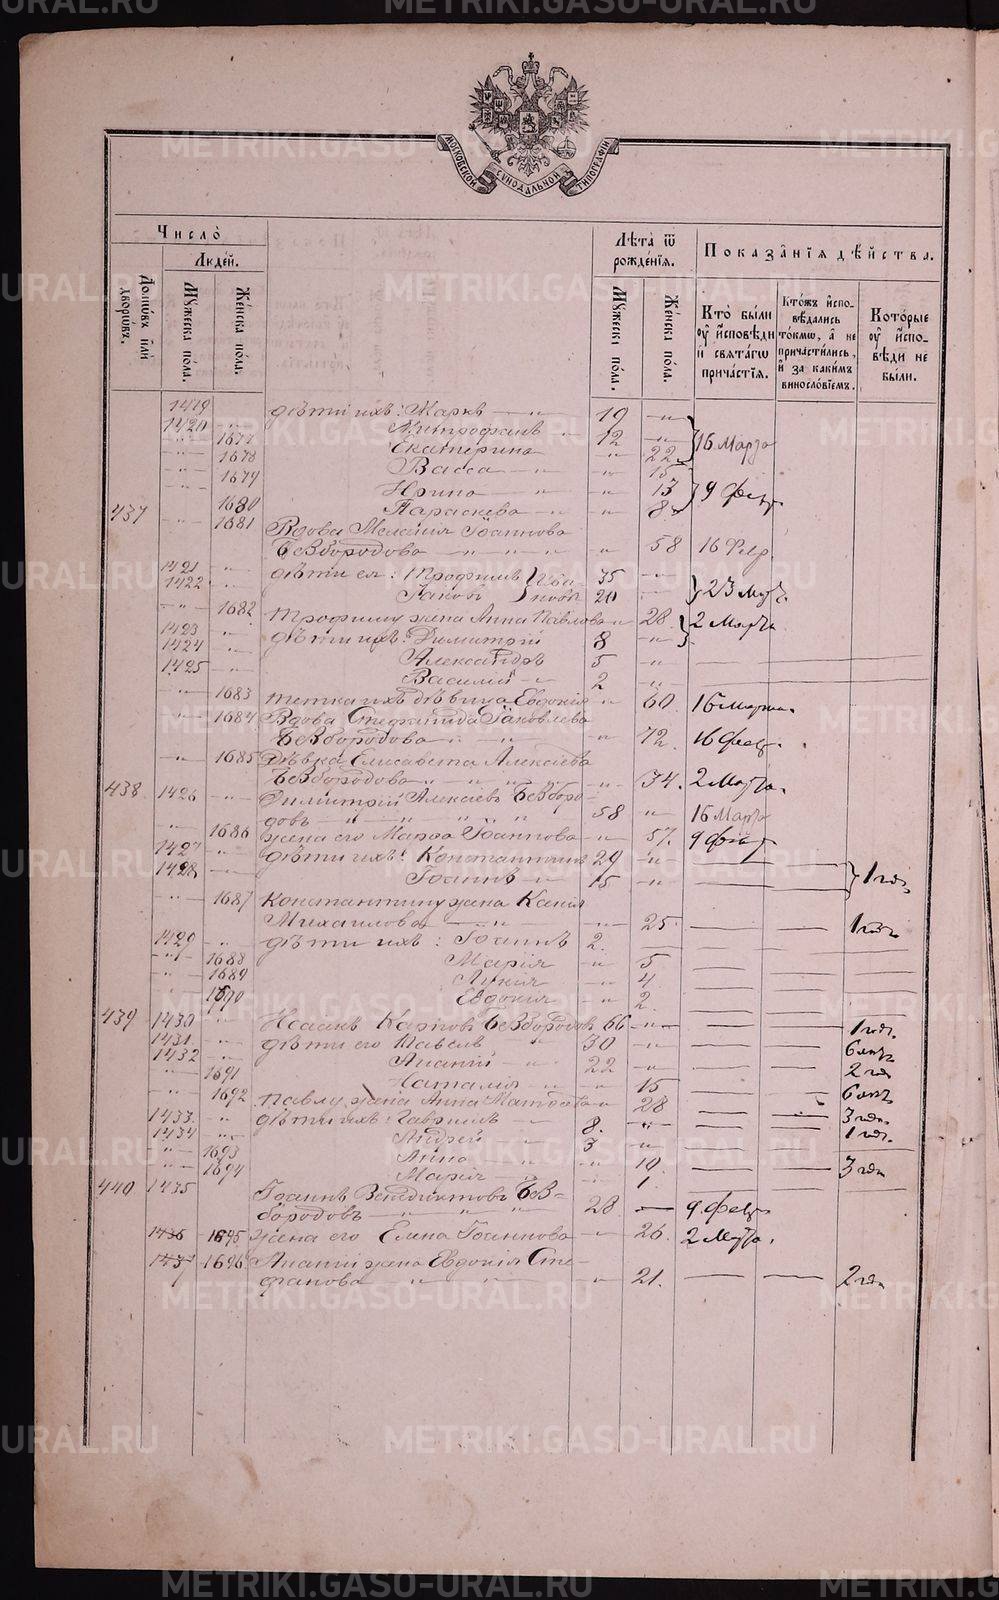 МОСКОВСКОЙ СѴНОДАЛЬНОЙ ТИПОГРАФІИ
Число̀
Людей.
Домѡвъ или дворѡвъ.
Мꙋжеска пола.
Женска пола.
Лѣта ѿ рожденїѧ.
Мꙋжеска пола.
Женска пола.
Показанїѧ дѣйства.
Кто были оу исповѣди и свѧтагѡ причастїѧ.
Ктожъ исповѣдались токмѡ, а не причастились, и за какимъ винословїемъ.
Которые оу исповѣди не были.
1419 дѣти ихъ: Маркъ — " 19 — "
1420 " Митрофанъ " 12 — " 16 Марта
" 1677 Екатерина " 22
" 1678 Васса — " " 15
" 1679 Ирина — " — " 13 9 фев.
" 1680 Параскева — " " 8
437 " 1681 Вдова Меланія Іоаннова
Безбородова — " — " — " " 58 16 Февр.
1421 " дѣти ея: Трофимъ } Ива- 35 — "
1422 " Іаковъ } новы 20 23 Мар.
" 1682 Трофиму жена Анна Павлова " 28. 2 Марта
1423 " дѣти ихъ: Димитрій 8 — "
1424 " Александръ 5 — "
1425 " Василій " 2 — "
" 1683 тетка ихъ дѣвица Евдокія " 60. 16 Марта.
" 1684 Вдова Стефанида Іаковлева
Безбородова " — " — " 72. 16 фев.
" 1685 Дѣвка Елисавета Алексѣева
Безбородова " " " " " 34. 2 Марта.
438 1426 " Димитрій Алексѣевъ Безборо-
довъ — " — " " " 58 " 16 Марта
" 1686 жена его Марѳа Іоаннова — " 57. 9 фев.
1427 " дѣти ихъ: Константинъ 29 — "
1428 " Іоаннъ — " 15 — " — — 1 годъ
" 1687 Константину жена
Михаилова — " — " " 25 — — 1 годъ
1429 " дѣти ихъ: Іоаннъ 2. — — —
" 1688 Марія — " 5 — —
" 1689 Лукія " 4 — —
" 1690 Евдокія — " 2. — —
439 1430 " Исаакъ Карповъ Безбородовъ 66 — " — — 1 годъ.
1431 " дѣти его Павелъ " 30 — " — — 6 лѣтъ
1432 " Ананій — " 22 — " — — 2 года
" 1691 Наталія — " — " 15
" 1692 Павлу жена Анна " 28 — — 6 лѣтъ
1433 " дѣти ихъ: Гавріилъ — 8. " — — 3 года.
1434 " Андрей " 3 — " — — 1 годъ.
" 1693 Анна — " — " 19. — — 3 года
" 1694 Марія — " 1. — —
440 1435 Іоаннъ Венедиктовъ Без-
бородовъ — " — " — " 28 — 9 фев.
1436 1695 жена его Елена Іоаннова — " 26. 2 Марта.
1437 1696 Ананій жена Евдокія Сте-
фанова " — " — " 21. — — 2 года
METRIKI.GASO-URAL.RU